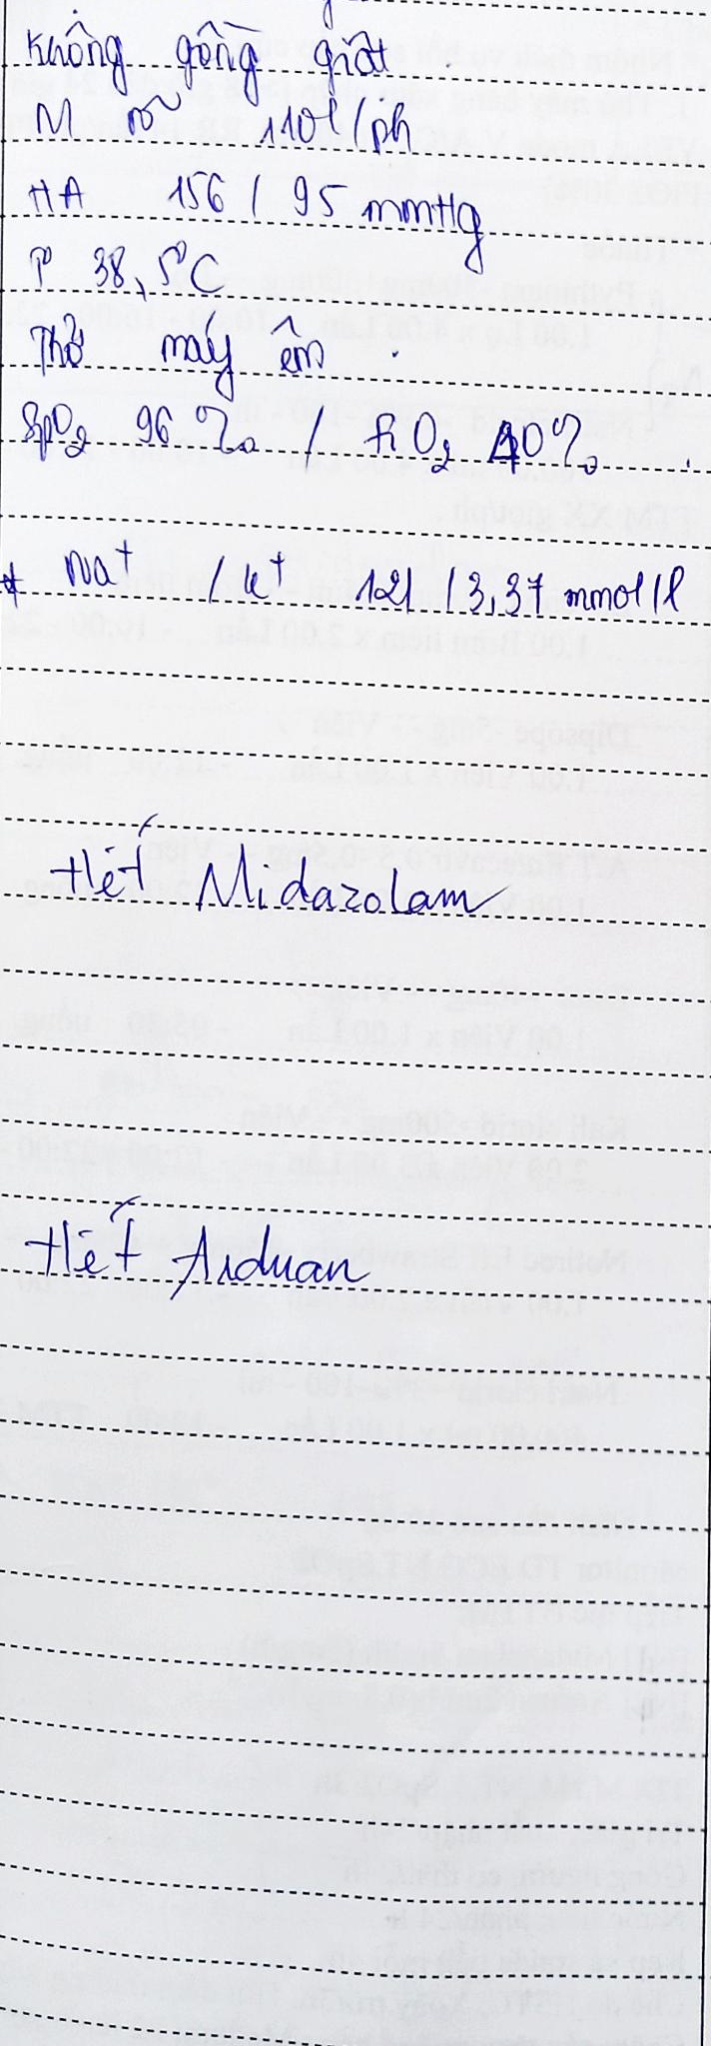 Không gồng giật
M rõ 110l/ph
HA 156 / 95 mmHg
T° 38,5°C
Thở máy êm.
SpO2 96% / FiO2 40%.
* Na+ / K+ 121 / 3,37 mmol/l
Hết Midazolam
Hết Arduan